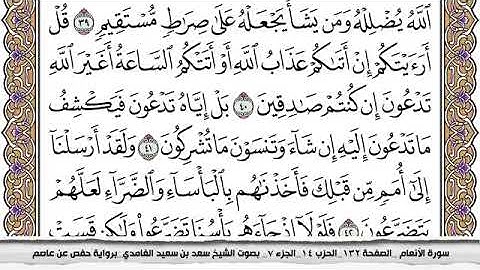 اللَّهُ يُضْلِلْهُ وَمَن يَشَأْ يَجْعَلْهُ عَلَىٰ صِرَاطٍ مُّسْتَقِيمٍ ٣٩ قُلْ
أَرَءَيْتَكُمْ إِنْ أَتَىٰكُمْ عَذَابُ اللَّهِ أَوْ أَتَتْكُمُ السَّاعَةُ أَغَيْرَ اللَّهِ
تَدْعُونَ إِن كُنتُمْ صَادِقِينَ ٤٠ بَلْ إِيَّاهُ تَدْعُونَ فَيَكْشِفُ
مَا تَدْعُونَ إِلَيْهِ إِن شَاءَ وَتَنسَوْنَ مَا تُشْرِكُونَ ٤١ وَلَقَدْ أَرْسَلْنَا
إِلَىٰ أُمَمٍ مِّن قَبْلِكَ فَأَخَذْنَٰهُم بِالْبَأْسَاءِ وَالضَّرَّاءِ لَعَلَّهُمْ
يَتَضَرَّعُونَ ٤٢ فَلَوْلَا إِذْ جَاءَهُم بَأْسُنَا تَضَرَّعُوا وَلَٰكِن قَسَتْ
سورة الأنعام _ الصفحة ١٣٢ _ الحزب ١٤ _ الجزء ٧ _ بصوت الشيخ سعد بن سعيد الغامدي _ برواية حفص عن عاصم